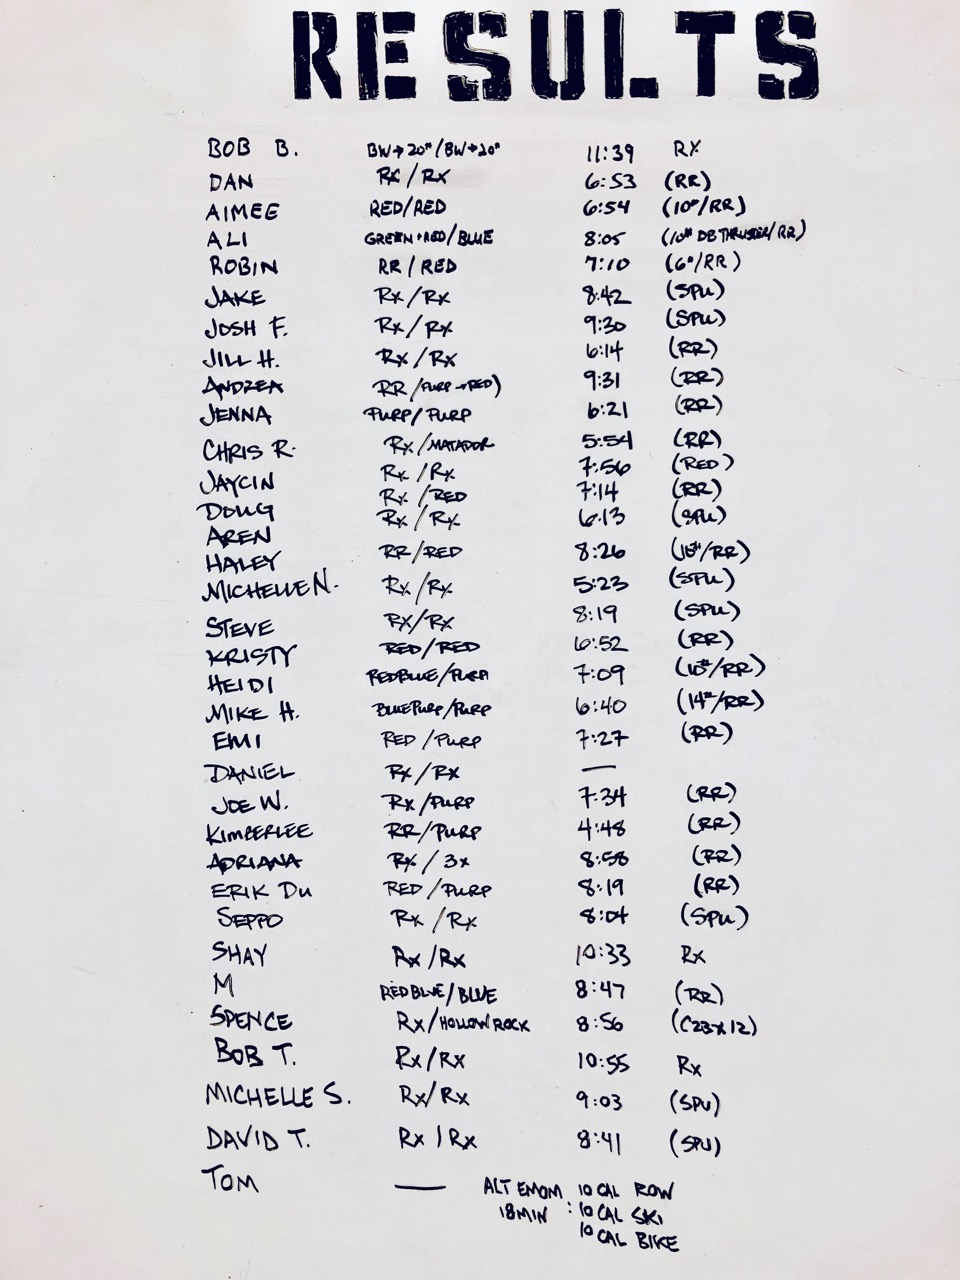 RESULTS
BOB B. BW→20"/BW→20" 11:39 RX
DAN RX/RX 6:53 (RR)
AIMEE RED/RED 6:54 (10#/RR)
ALI GREEN+RED/BLUE 8:05 (10# DB THRUSTER/RR)
ROBIN RR/RED 7:10 (6"/RR)
JAKE Rx/Rx 8:42 (SPU)
JOSH F. Rx/Rx 9:30 (SPU)
JILL H. Rx/Rx 6:14 (RR)
ANDREA RR/PURP→RED) 9:31 (RR)
JENNA PURP/PURP 6:21 (RR)
CHRIS R. Rx/MATADOR 5:54 (RR)
JAYCIN Rx/Rx 7:56 (RED)
DOUG Rx/RED 7:14 (RR)
AREN Rx/Rx 6:13 (SPU)
HALEY RR/RED 8:26 (18"/RR)
MICHELLE N. Rx/Rx 5:23 (SPU)
STEVE Rx/Rx 8:19 (SPU)
KRISTY RED/RED 6:52 (RR)
HEIDI REDBLUE/PURP 7:09 (10#/RR)
MIKE H. BLUEPURP/PURP 6:40 (14"/RR)
EMI RED/PURP 7:27 (RR)
DANIEL Rx/Rx —
JOE W. Rx/PURP 7:34 (RR)
KIMBERLEE RR/PURP 4:48 (RR)
ADRIANA Rx/3x 8:58 (RR)
ERIK DU RED/PURP 8:19 (RR)
SEPPO Rx/Rx 8:04 (SPU)
SHAY Rx/Rx 10:33 Rx
M REDBLUE/BLUE 8:47 (RR)
SPENCE Rx/HOLLOW ROCK 8:56 (C23x12)
BOB T. Rx/Rx 10:55 Rx
MICHELLE S. Rx/Rx 9:03 (SPU)
DAVID T. Rx/Rx 8:41 (SPU)
TOM — ALT EMOM 10 CAL ROW
18MIN : 10 CAL SKI
10 CAL BIKE